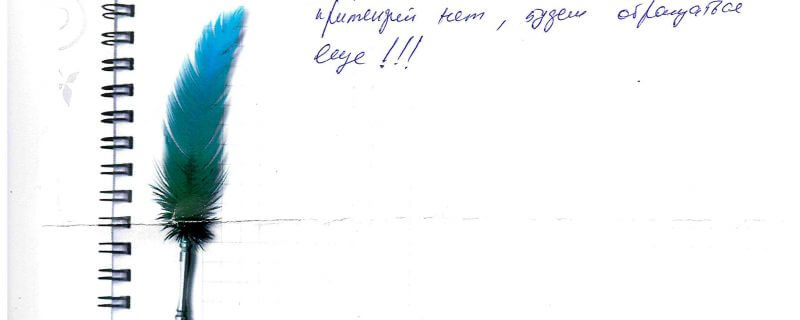 притензий нет, будем обращаться
еще!!!